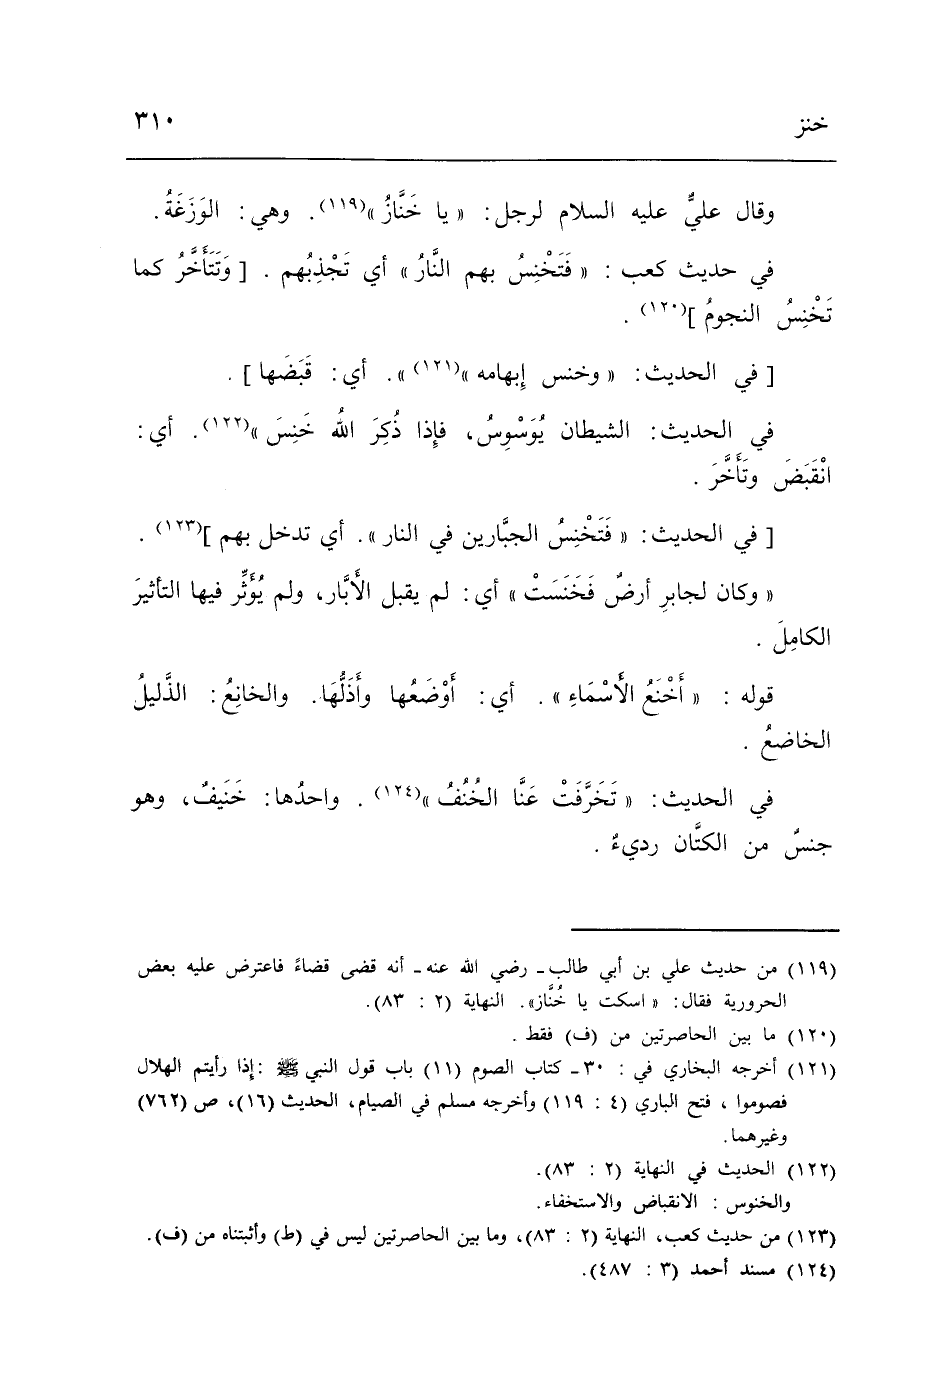 خنز ٣١٠
وقال عليٌّ عليه السلام لرجل: « يا خَنَّازُ »(١١٩). وهي: الوَزَغَةُ.
في حديث كعب : « فَتَخْنِسُ بهم النَّارُ » أي تَجْذِبُهم . [ وَتَتَأَخَّرُ كما
تَخْنِسُ النجومُ ](١٢٠) .
[ في الحديث: « وخنس إبهامه »(١٢١) ». أي: قَبَضَها ] .
في الحديث: الشيطان يُوَسْوِسُ، فإذا ذُكِرَ اللهُ خَنِسَ »(١٢٢). أي:
انْقَبَضَ وتَأَخَّرَ .
[ في الحديث: « فَتَخْنِسُ الجبَّارين في النار ». أي تدخل بهم ](١٢٣) .
« وكان لجابرِ أرضٌ فَخَنَسَتْ » أي: لم يقبل الأَبَّار، ولم يُؤَثِّر فيها التأثيرَ
الكامِلَ .
قوله : « أَخْنَعُ الأَسْمَاءِ » . أي: أَوْضَعُها وأَذَلُّهَا. والخانِعُ: الذَّليلُ
الخاضعُ .
في الحديث: « تَخَرَّفَتْ عَنَّا الخُنُفُ »(١٢٤) . واحدُها: خَنَيفٌ، وهو
جنسٌ من الكتَّان رديءٌ .
(١١٩) من حديث علي بن أبي طالب ـ رضي الله عنه ـ أنه قضى قضاءً فاعترض عليه بعض
الحرورية فقال: « اسكت يا خُنَّاز». النهاية (٢ : ٨٣).
(١٢٠) ما بين الحاصرتين من (ف) فقط .
(١٢١) أخرجه البخاري في : ٣٠ ـ كتاب الصوم (١١) باب قول النبي ﷺ :إذا رأيتم الهلال
فصوموا ، فتح الباري (٤ : ١١٩) وأخرجه مسلم في الصيام، الحديث (١٦)، ص (٧٦٢)
وغيرهما.
(١٢٢) الحديث في النهاية (٢ : ٨٣).
والخنوس : الانقباض والاستخفاء.
(١٢٣) من حديث كعب، النهاية (٢ : ٨٣)، وما بين الحاصرتين ليس في (ط) وأثبتناه من (ف).
(١٢٤) مسند أحمد (٣ : ٤٨٧).